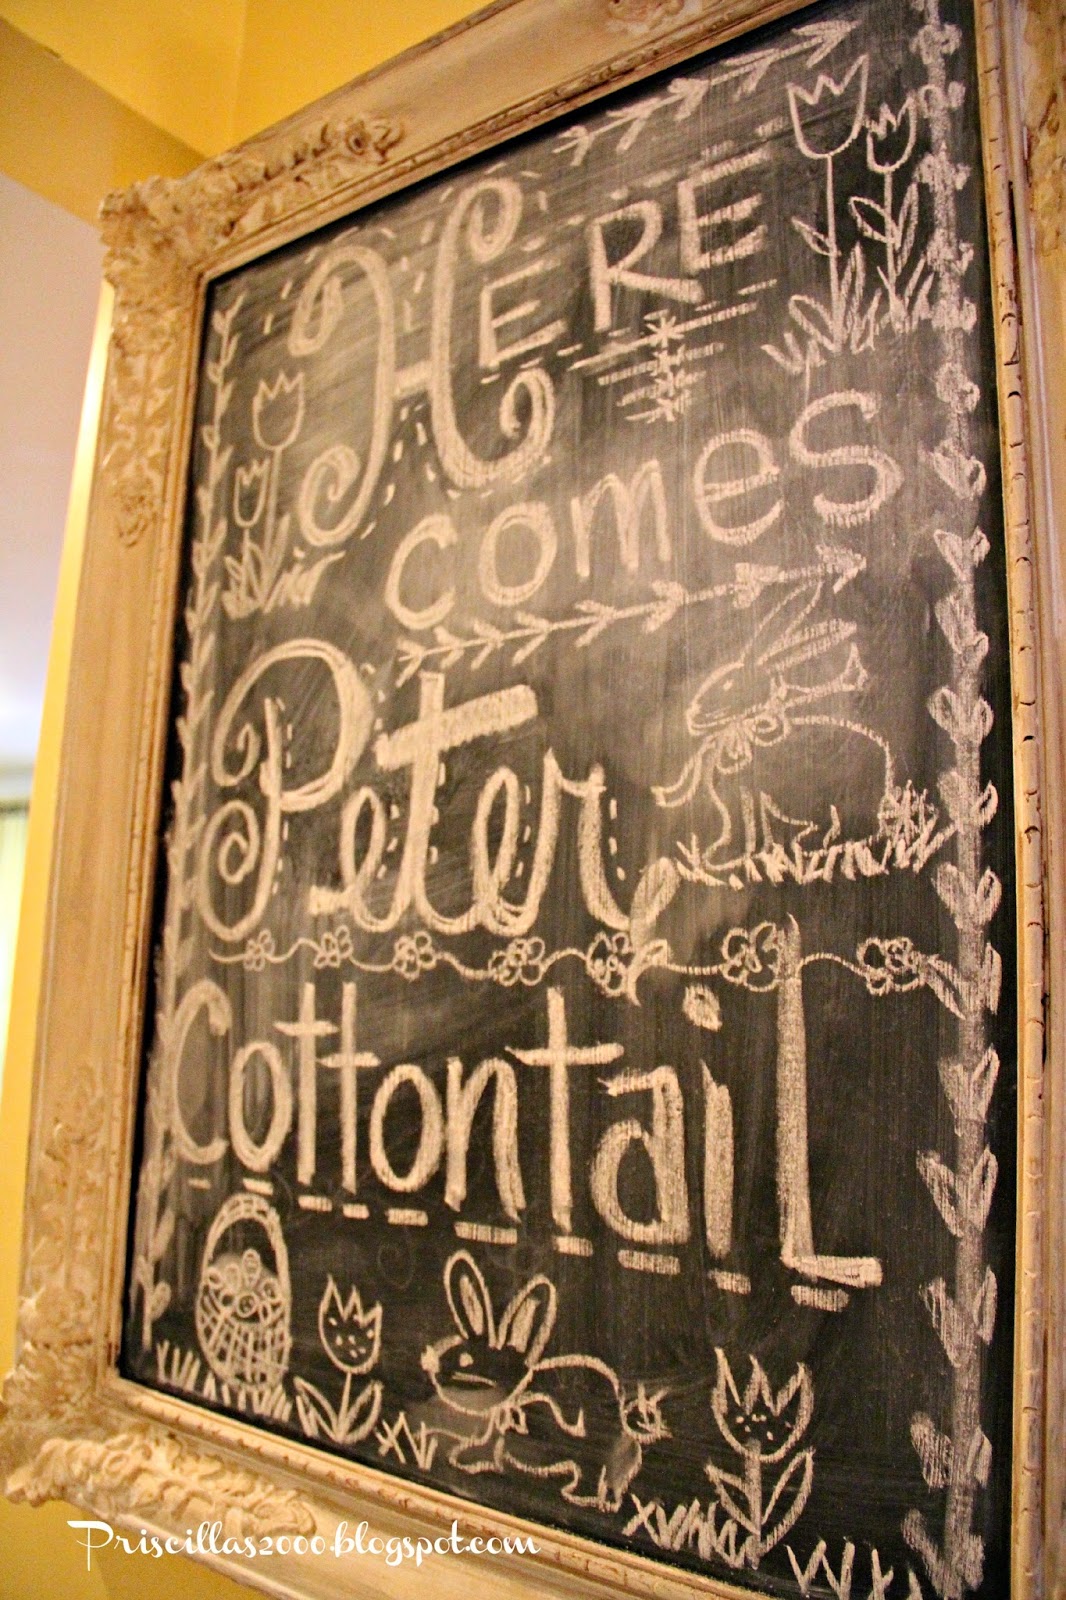 HERE
comes
Peter
CottontaiL
Priscillas2000.blogspot.com